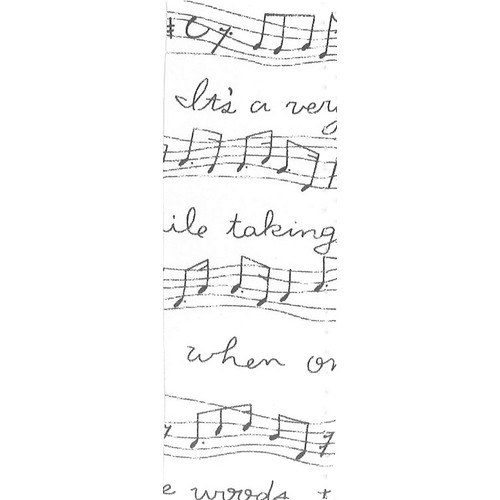 It's a very
ile taking
when on
e woods t